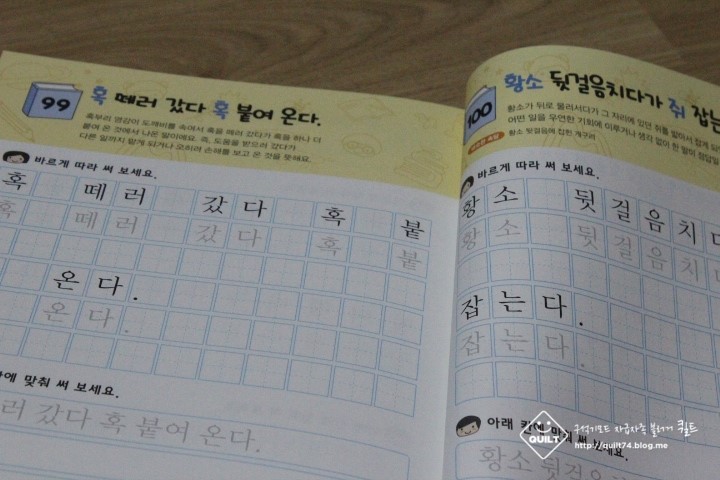 99 혹 떼러 갔다 혹 붙여 온다.
혹부리 영감이 도깨비를 속여서 혹을 떼러 갔다가 혹을 하나 더
붙여 온 것에서 나온 말이에요. 즉, 도움을 받으러 갔다가
다른 일까지 맡게 되거나 오히려 손해를 보고 온 것을 뜻해요.
바르게 따라 써 보세요.
혹 떼러 갔다 혹 붙
혹 떼러 갔다 혹 붙
온다.
온다.
에 맞춰 써 보세요.
러 갔다 혹 붙여 온다.
100 황소 뒷걸음치다가 쥐 잡는
황소가 뒤로 물러서다가 그 자리에 있던 쥐를 밟아서 잡게 되
어떤 일을 우연한 기회에 이루거나 생각 없이 한 말이 정답일
황소 뒷걸음에 잡힌 개구리
바르게 따라 써 보세요.
황소 뒷걸음치다
황소 뒷걸음치
잡는다.
잡는다.
아래 칸에 맞춰 써 보세요.
황소 뒷걸음
QUILT
구석기모드 자급자족 블로거 퀼트
http://quilt74.blog.me